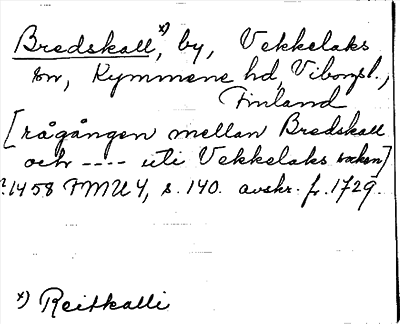 Bredskall, x) by, Vekkelaks
sn, Kymmene hd, Viborgsl.,
Finland
[rågången mellan Bredskall
och ---- uti Vekkelaks socken]
1458 FMU 4, s. 140. avskr. fr. 1729.
x) Reitkalli